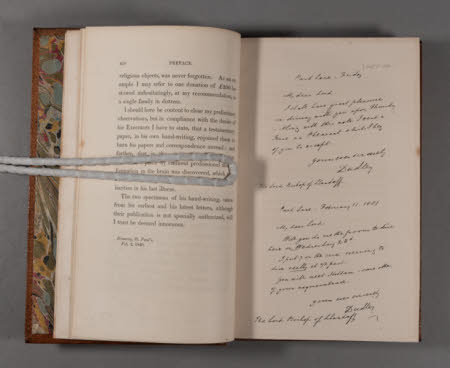 PREFACE.
religious objects, was never forgotten. As an ex-
ample I may refer to one donation of £200 be-
stowed unhesitatingly, at my recommendation, on
a single family in distress.
I should here be content to close my preliminary
observations, but in compliance with the desire of
his Executors I have to state, that a testamentary
paper, in his own hand-writing, enjoined them to
burn his papers and correspondence unread: and
further, that
formation in the brain was discovered, which
in his last illness.
The two specimens of his hand-writing, taken
from his earliest and his latest letters, although
their publication is not specially authorised, will
I trust be deemed innocuous.
Deanery, St. Paul's,
Feb. 1840.
Park Lane. Friday
My dear Lord
I shall have great pleasure
in dining with you upon Thursday.
Along with this note I send a
of you to accept.
yours ever sincerely
Dudley
The Lord Bishop of Llandaff.
Park Lane. February 11.
My dear Lord.
Will you do me the favour to dine
here on Wednesday 22d
I put 7 on the card meaning to
dine really at ½ past.
You will meet Hallam, some other
of your acquaintance.
yours ever sincerely
Dudley
The Lord Bishop of Llandaff